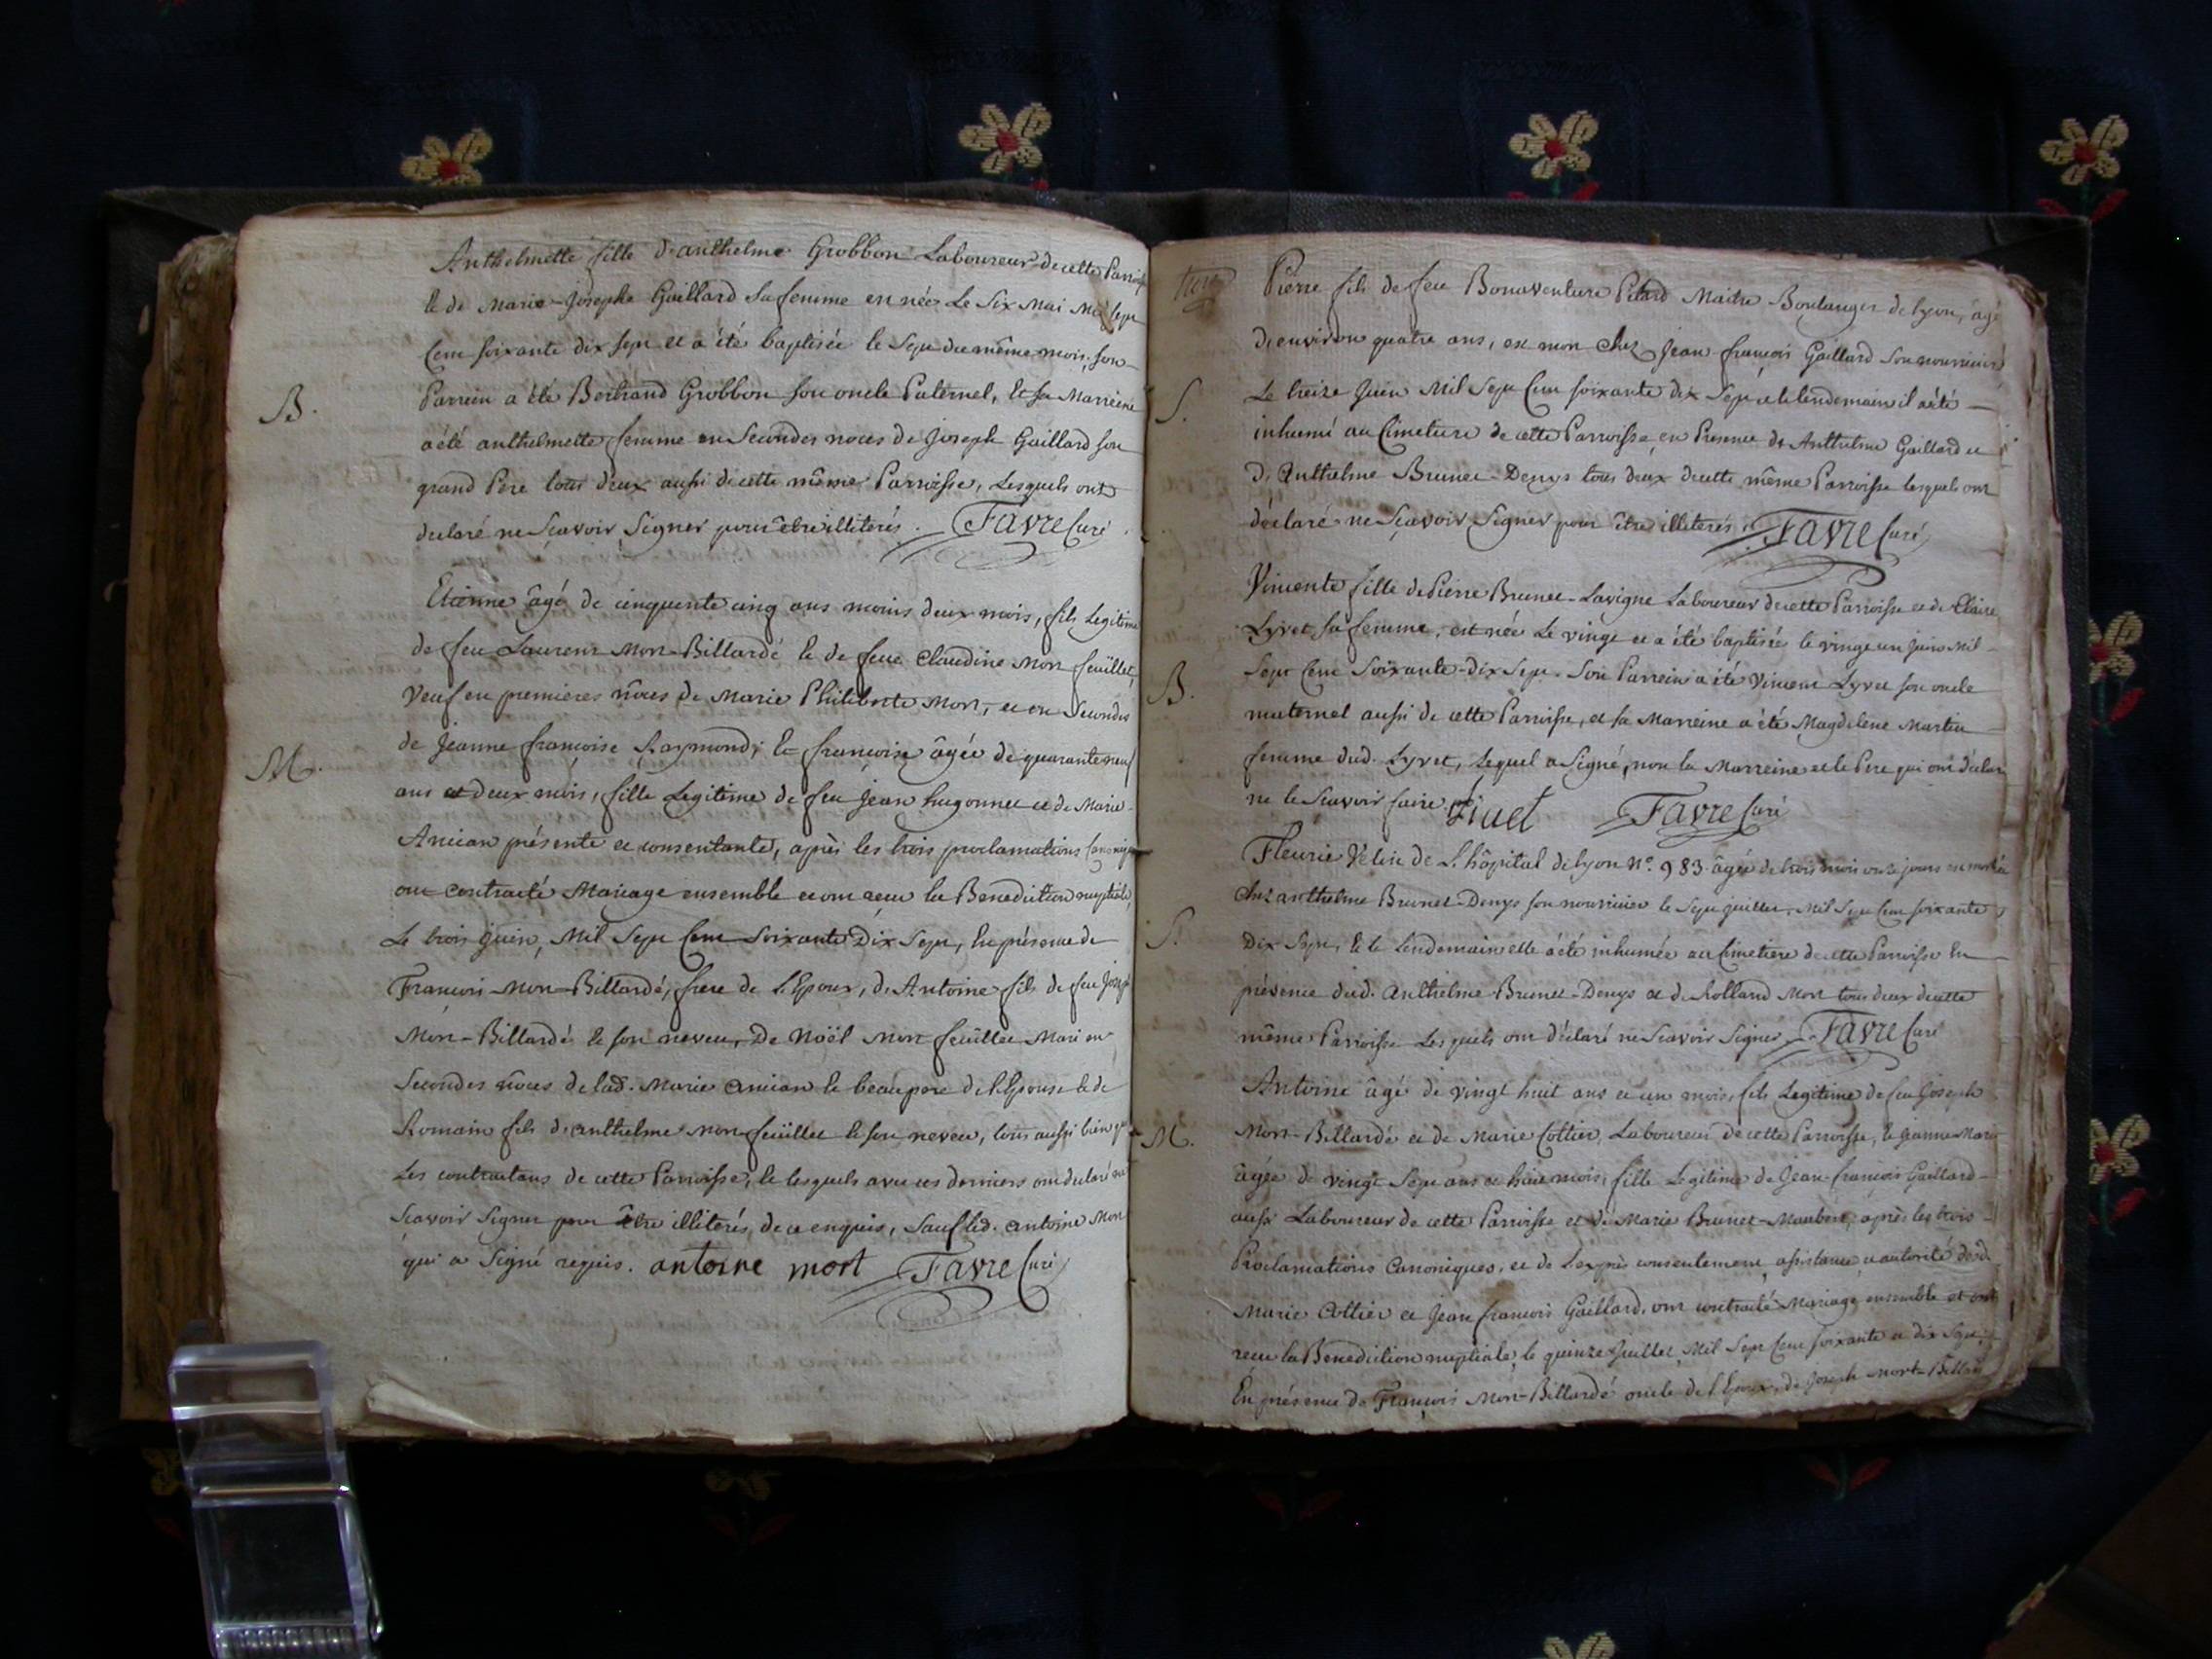 Anthelmette fille d'anthelme Grobbon Laboureur de cette Parroisse
& de Marie-Josephe Gaillard sa femme est née Le Six Mai Mil Sept
Cent soixante dix sept et a été baptisée le Sept du même mois; son
B.
Parrein a été Bertrand Grobbon son oncle Paternel, & sa Marreine
a été anthelmette femme en Secondes noces de Joseph Gaillard son
grand Pere tous deux aussi de cette même Parroisse, Lesquels ont
declaré ne Sçavoir Signer pour être illiterés. Favre Curé
Etienne âgé de cinquante cinq ans moins deux mois, fils Legitime
de feu Laurent Mort-Billardé & de feue Claudine Mort feüillet,
Veuf en premieres nôces de Marie Philiberte Mort, et en Secondes
M.
de Jeanne françoise Raymond; & françoise âgée de quarante neuf
ans et deux mois, fille Legitime de feu Jean hugonnet et de Marie
Ancian présente et consentante, après les trois proclamations
ont contracté Mariage ensemble et ont reçu la Benediction nuptiale,
Le trois Juin, Mil Sept Cent Soixante Dix Sept, En présence de
François Mort-Billardé, frere de L'Epoux, d'Antoine fils de feu Joseph
Mort-Billardé & son neveu, De Noël Mort feüillet Mari en
Secondes nôces de lad. Marie Ancian & beaupere de l'Epouse & de
Romain fils d'anthelme Mort-feüillet & son neveu, tous aussi bien que
Les contractans de cette Parroisse, & lesquels avec ces derniers ont declaré ne
Sçavoir Signer pour être illiterés, de ce enquis, Sauf led. antoine Mort
qui a Signé requis. antoine mort Favre Curé
Pierre fils de feu Bonaventure Petard Maitre Boulanger de Lyon, âgé
D'environ quatre ans, est mort chez Jean françois Gaillard son nourricier
S.
Le treize Juin Mil Sept Cent soixante dix Sept et le lendemain il a été
inhumé au Cimetiere de cette Parroisse, en Presence de Anthelme Gaillard et
D'Anthelme Brunet-Denys tous deux de cette même Parroisse lesquels ont
déclaré ne Sçavoir Signer pour être illiterés. Favre Curé
Vincente fille de Pierre Brunet-Lavigne Laboureur de cette Parroisse et de Claire
Lyvet sa femme, est née Le vingt et a été baptisée le vingt un Juin Mil
B.
Sept Cent Soixante-Dix Sept. Son Parrein a été Vincent Lyvet son oncle
maternel aussi de cette Parroisse, et sa Marreine a été Magdelene Martin
femme dud. Lyvet, Lequel a Signé, non la Marreine et le Pere qui ont déclaré
ne le Sçavoir faire. Liuet Favre Curé
Fleurie de L'hôpital de Lyon N°. 983 âgée de trois mois onze jours est morte
chez anthelme Brunet-Denys son nourricier le Sept Juillet, Mil Sept Cent soixante
S.
Dix Sept, & le Lendemain elle a été inhumée au Cimetiere de cette Parroisse En
présence dud. Anthelme Brunet-Denys et de Rolland Mort tous deux de cette
même Parroisse Lesquels ont déclaré ne Sçavoir Signer. Favre Curé
Antoine âgé de vingt huit ans et un mois, fils Legitime de feu Joseph
M.
Mort-Billardé et de Marie Cottier, Laboureur de cette Parroisse, & Jeanne Marie
âgée de vingt Sept ans et huit mois, fille Legitime de Jean-françois Gaillard
aussi Laboureur de cette Parroisse et de Marie Brunet-Maubert, après les trois
Proclamations Canoniques, et de L'exprès consentement, assistance et autorité desd.
Marie Cottier et Jean françois Gaillard, ont contracté Mariage ensemble et ont
reçu la Benediction nuptiale, le quinze Juillet, Mil Sept Cent soixante et dix Sept,
En présence de François Mort-Billardé oncle de l'Epoux, de Joseph Mort-Billardé